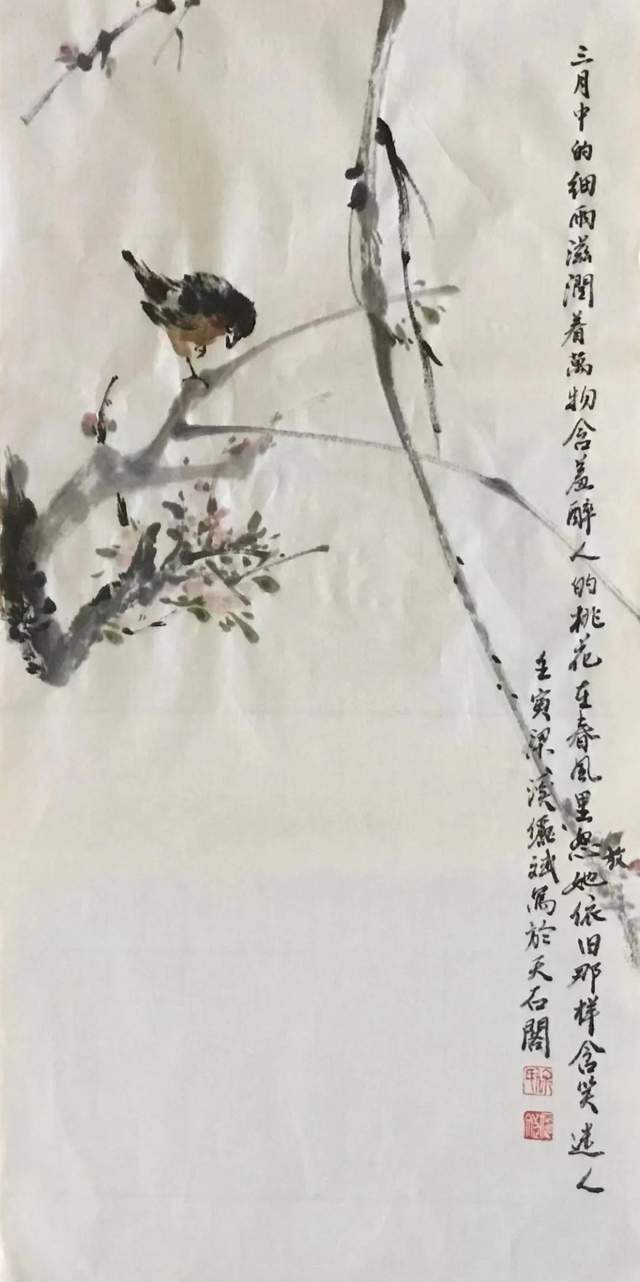 三月中的细雨滋潤着萬物含羞醉人的桃花在春風里怒放她依旧那样含笑迷人
壬寅梁溪繼斌寫於天石閣